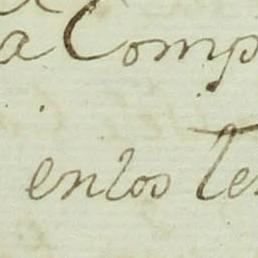 a Comp
en los te